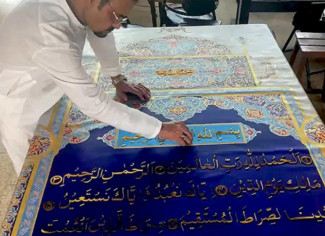 بسم الله الرحمن الرحيم
الحمد لله رب العالمين الرحمن الرحيم
مالك يوم الدين إياك نعبد وإياك نستعين
اهدنا الصراط المستقيم صراط الذين أنعمت